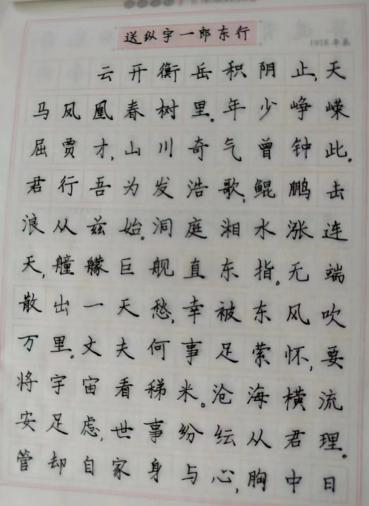 送纵宇一郎东行
云开衡岳积阴止,天
马凤凰春树里。年少峥嵘
屈贾才,山川奇气曾钟此。
君行吾为发浩歌,鲲鹏击
浪从兹始。洞庭湘水涨连
天,艟艨巨舰直东指。无端
散出一天愁,幸被东风吹
万里。丈夫何事足萦怀,要
将宇宙看稊米。沧海横流
安足虑,世事纷纭从君理。
管却自家身与心,胸中日